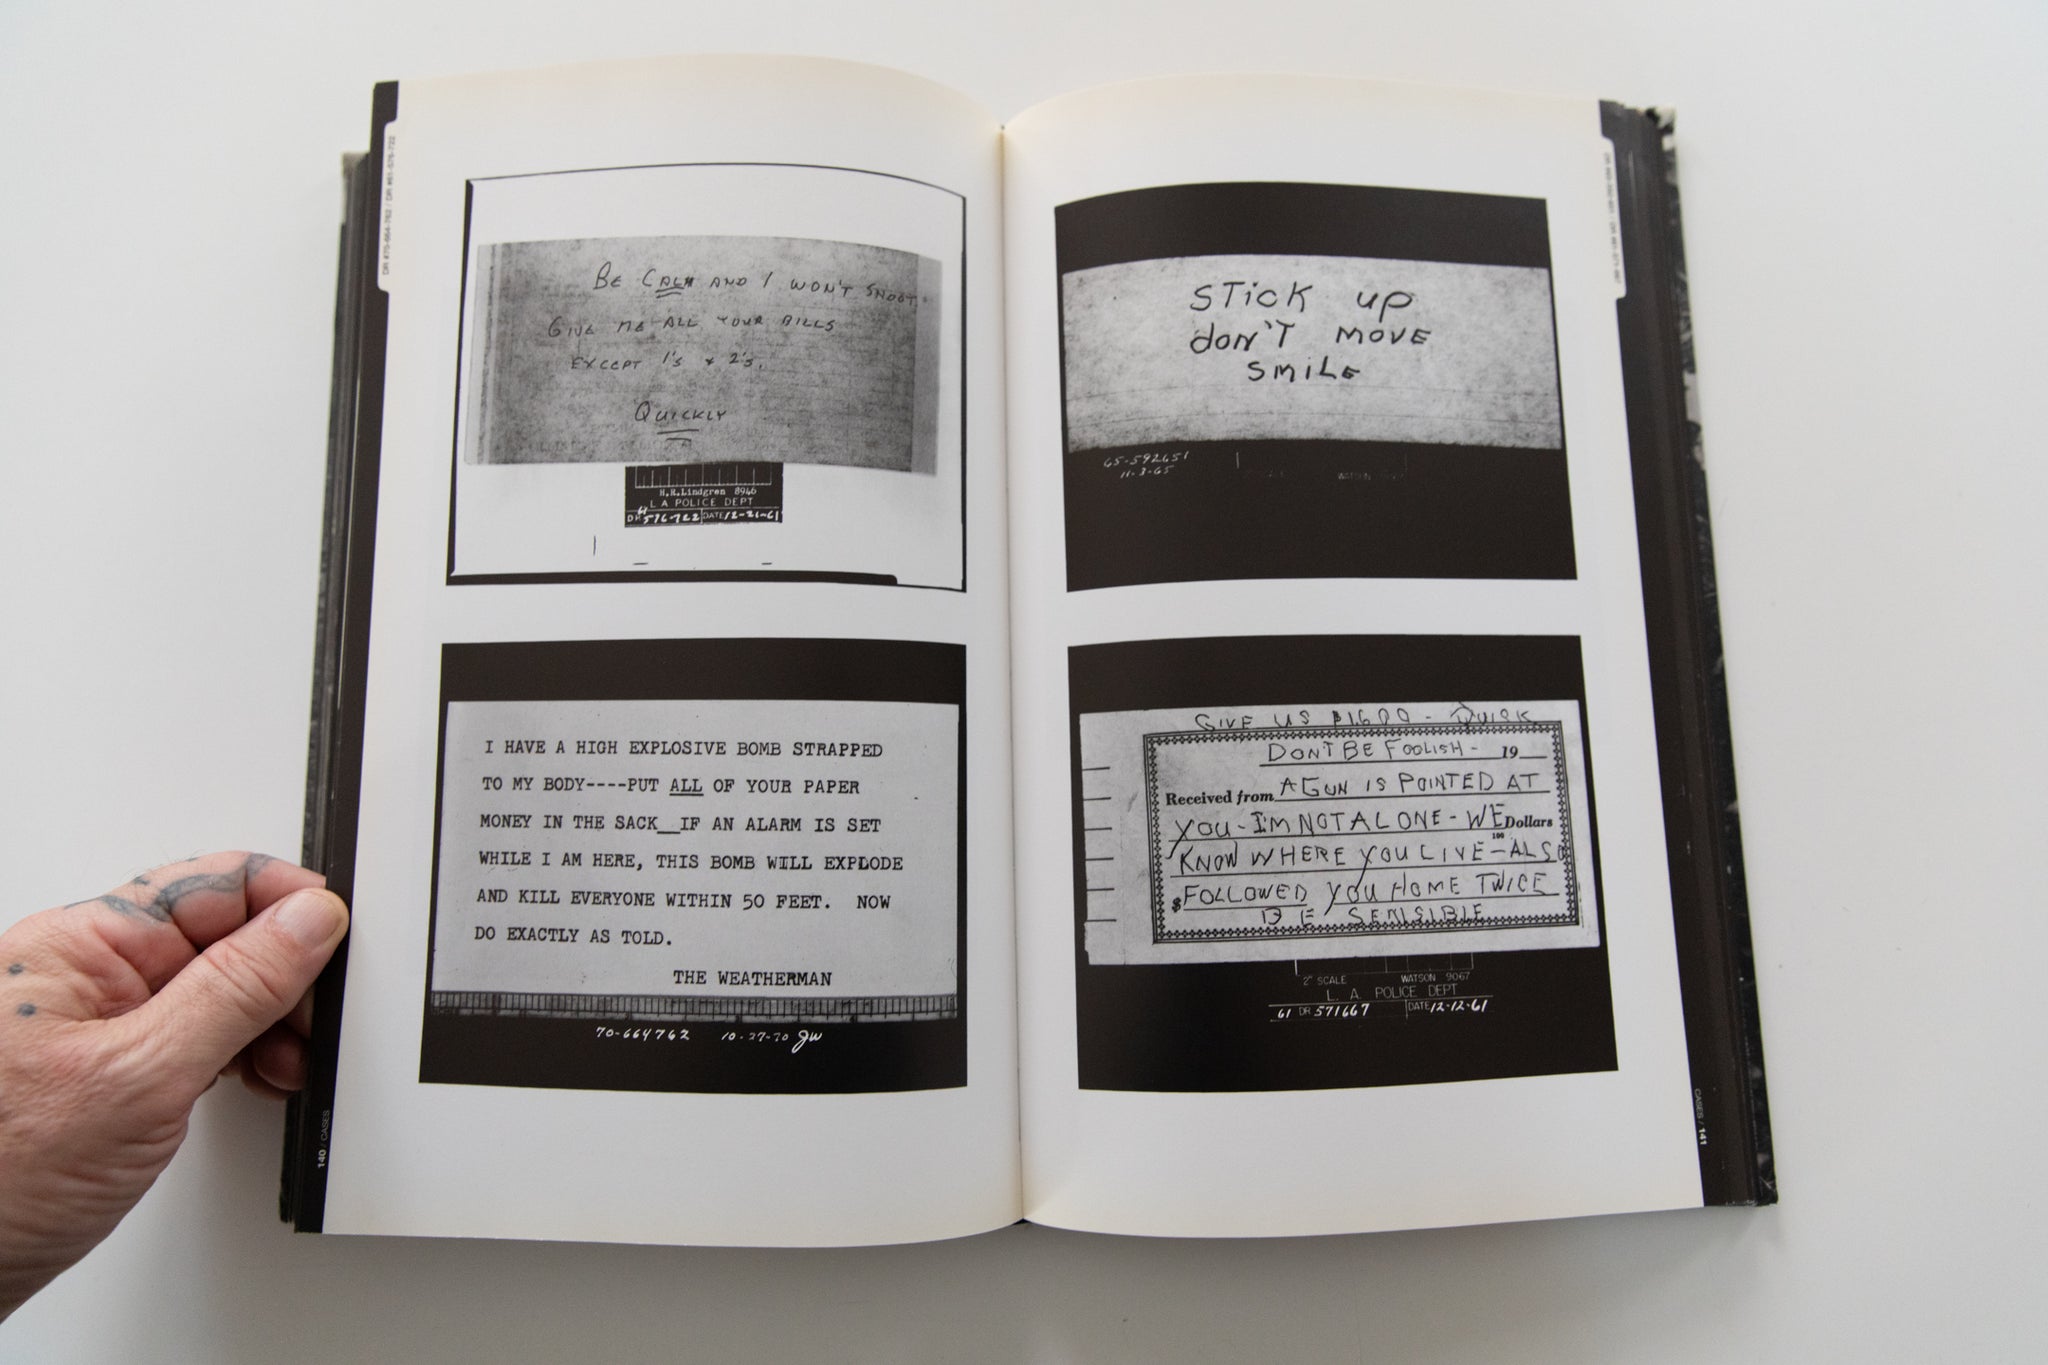 DR #70-664-762 / DR #61-576-722
BE CALM AND I WON'T SHOOT.
GIVE ME ALL YOUR BILLS
EXCEPT 1's & 2's.
QUICKLY
H.R.Lindgren 8946
L A POLICE DEPT
DR 61 576-722 DATE 12-21-61
I HAVE A HIGH EXPLOSIVE BOMB STRAPPED
TO MY BODY----PUT ALL OF YOUR PAPER
MONEY IN THE SACK__IF AN ALARM IS SET
WHILE I AM HERE, THIS BOMB WILL EXPLODE
AND KILL EVERYONE WITHIN 50 FEET. NOW
DO EXACTLY AS TOLD.
THE WEATHERMAN
70-664762 10-27-70 JW
140 / CASES
STICK UP
DON'T MOVE
SMILE
65-592651
11-3-65
WATSON
GIVE US $1600 - QUICK
DONT BE FOOLISH - 19
Received from A GUN IS POINTED AT
YOU - I'M NOT ALONE - WE Dollars
100
KNOW WHERE YOU LIVE - ALSO
$ FOLLOWED YOU HOME TWICE
BE SENSIBLE
2" SCALE WATSON 9067
L. A. POLICE DEPT
61 DR 571667 DATE 12-12-61
CASES / 141